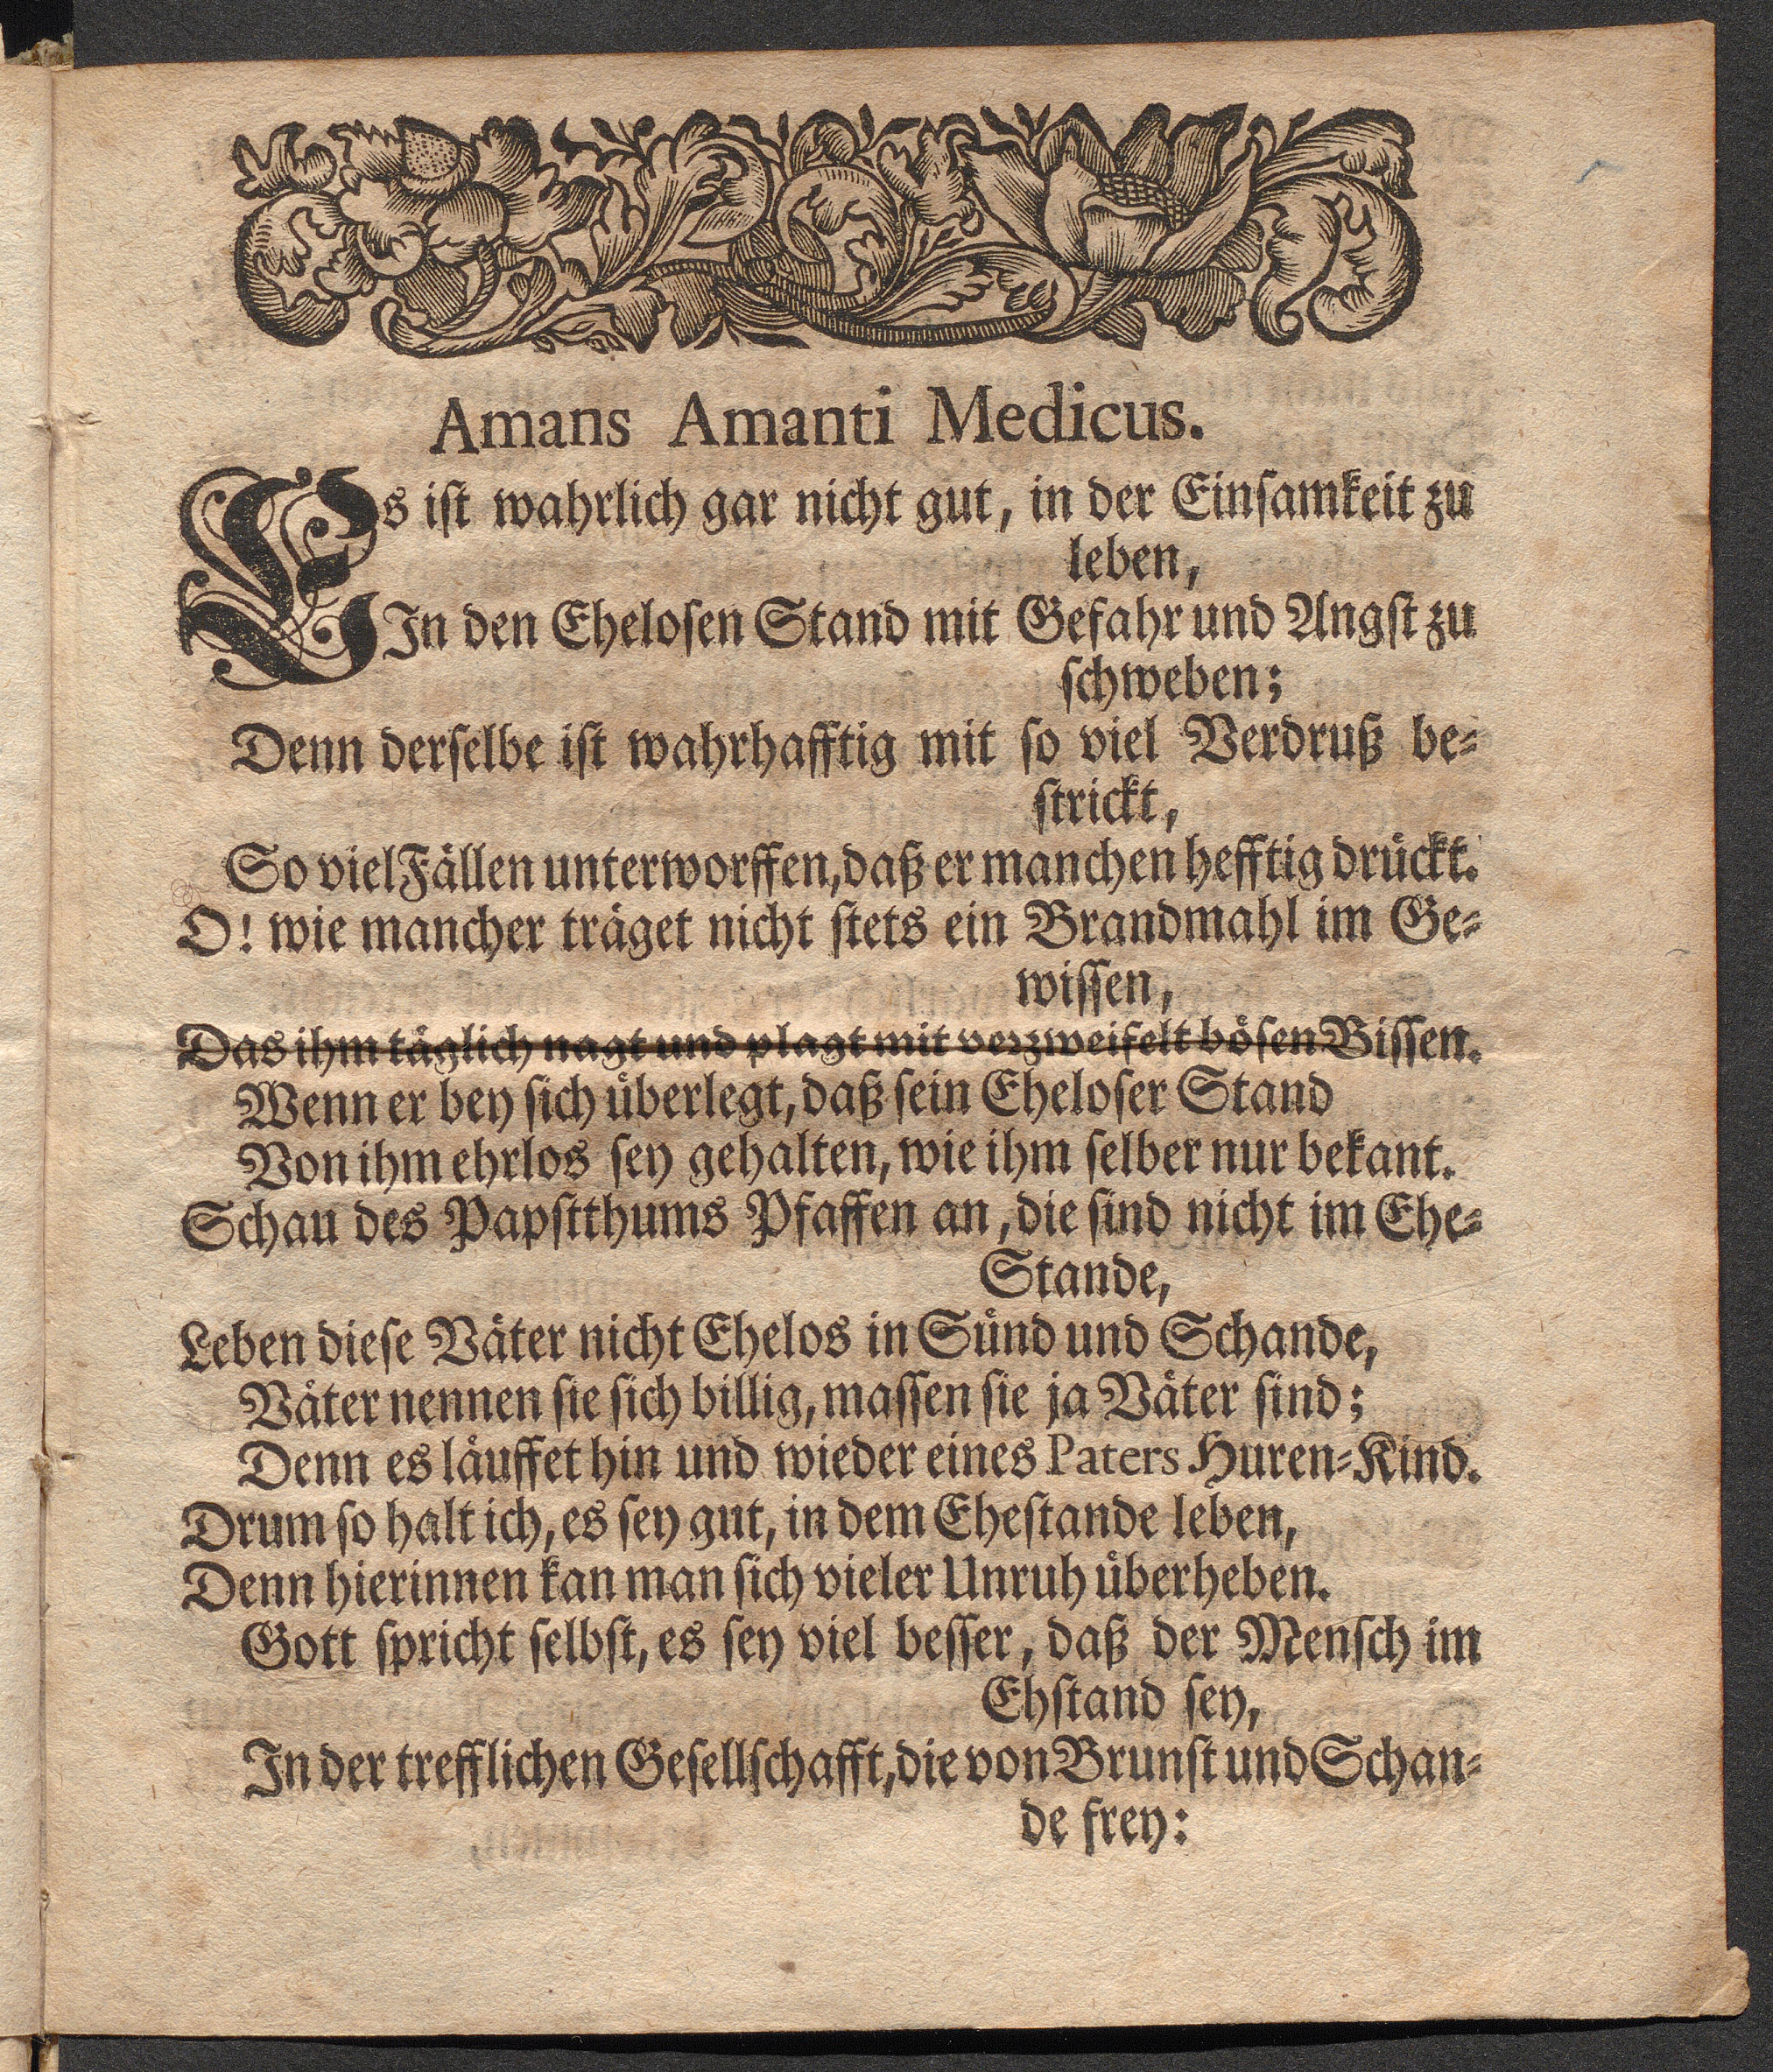 Amans Amanti Medicus.
Es ist wahrlich gar nicht gut, in der Einsamkeit zu
leben,
In den Ehelosen Stand mit Gefahr und Angst zu
schweben;
Denn derselbe ist wahrhafftig mit so viel Verdruß be-
strickt,
So viel Fällen unterworffen, daß er manchen hefftig drückt.
O! wie mancher träget nicht stets ein Brandmahl im Ge-
wissen,
Das ihm täglich nagt und plagt mit verzweifelt bösen Bissen.
Wenn er bey sich überlegt, daß sein Eheloser Stand
Von ihm ehrlos sey gehalten, wie ihm selber nur bekant.
Schau des Papstthums Pfaffen an, die sind nicht im Ehe-
Stande,
Leben diese Väter nicht Ehelos in Sünd und Schande,
Väter nennen sie sich billig, massen sie ja Väter sind;
Denn es läuffet hin und wieder eines Paters Huren-Kind.
Drum so halt ich, es sey gut, in dem Ehestande leben,
Denn hierinnen kan man sich vieler Unruh überheben.
Gott spricht selbst, es sey viel besser, daß der Mensch im
Ehstand sey,
In der trefflichen Gesellschafft, die von Brunst und Schan-
de frey: